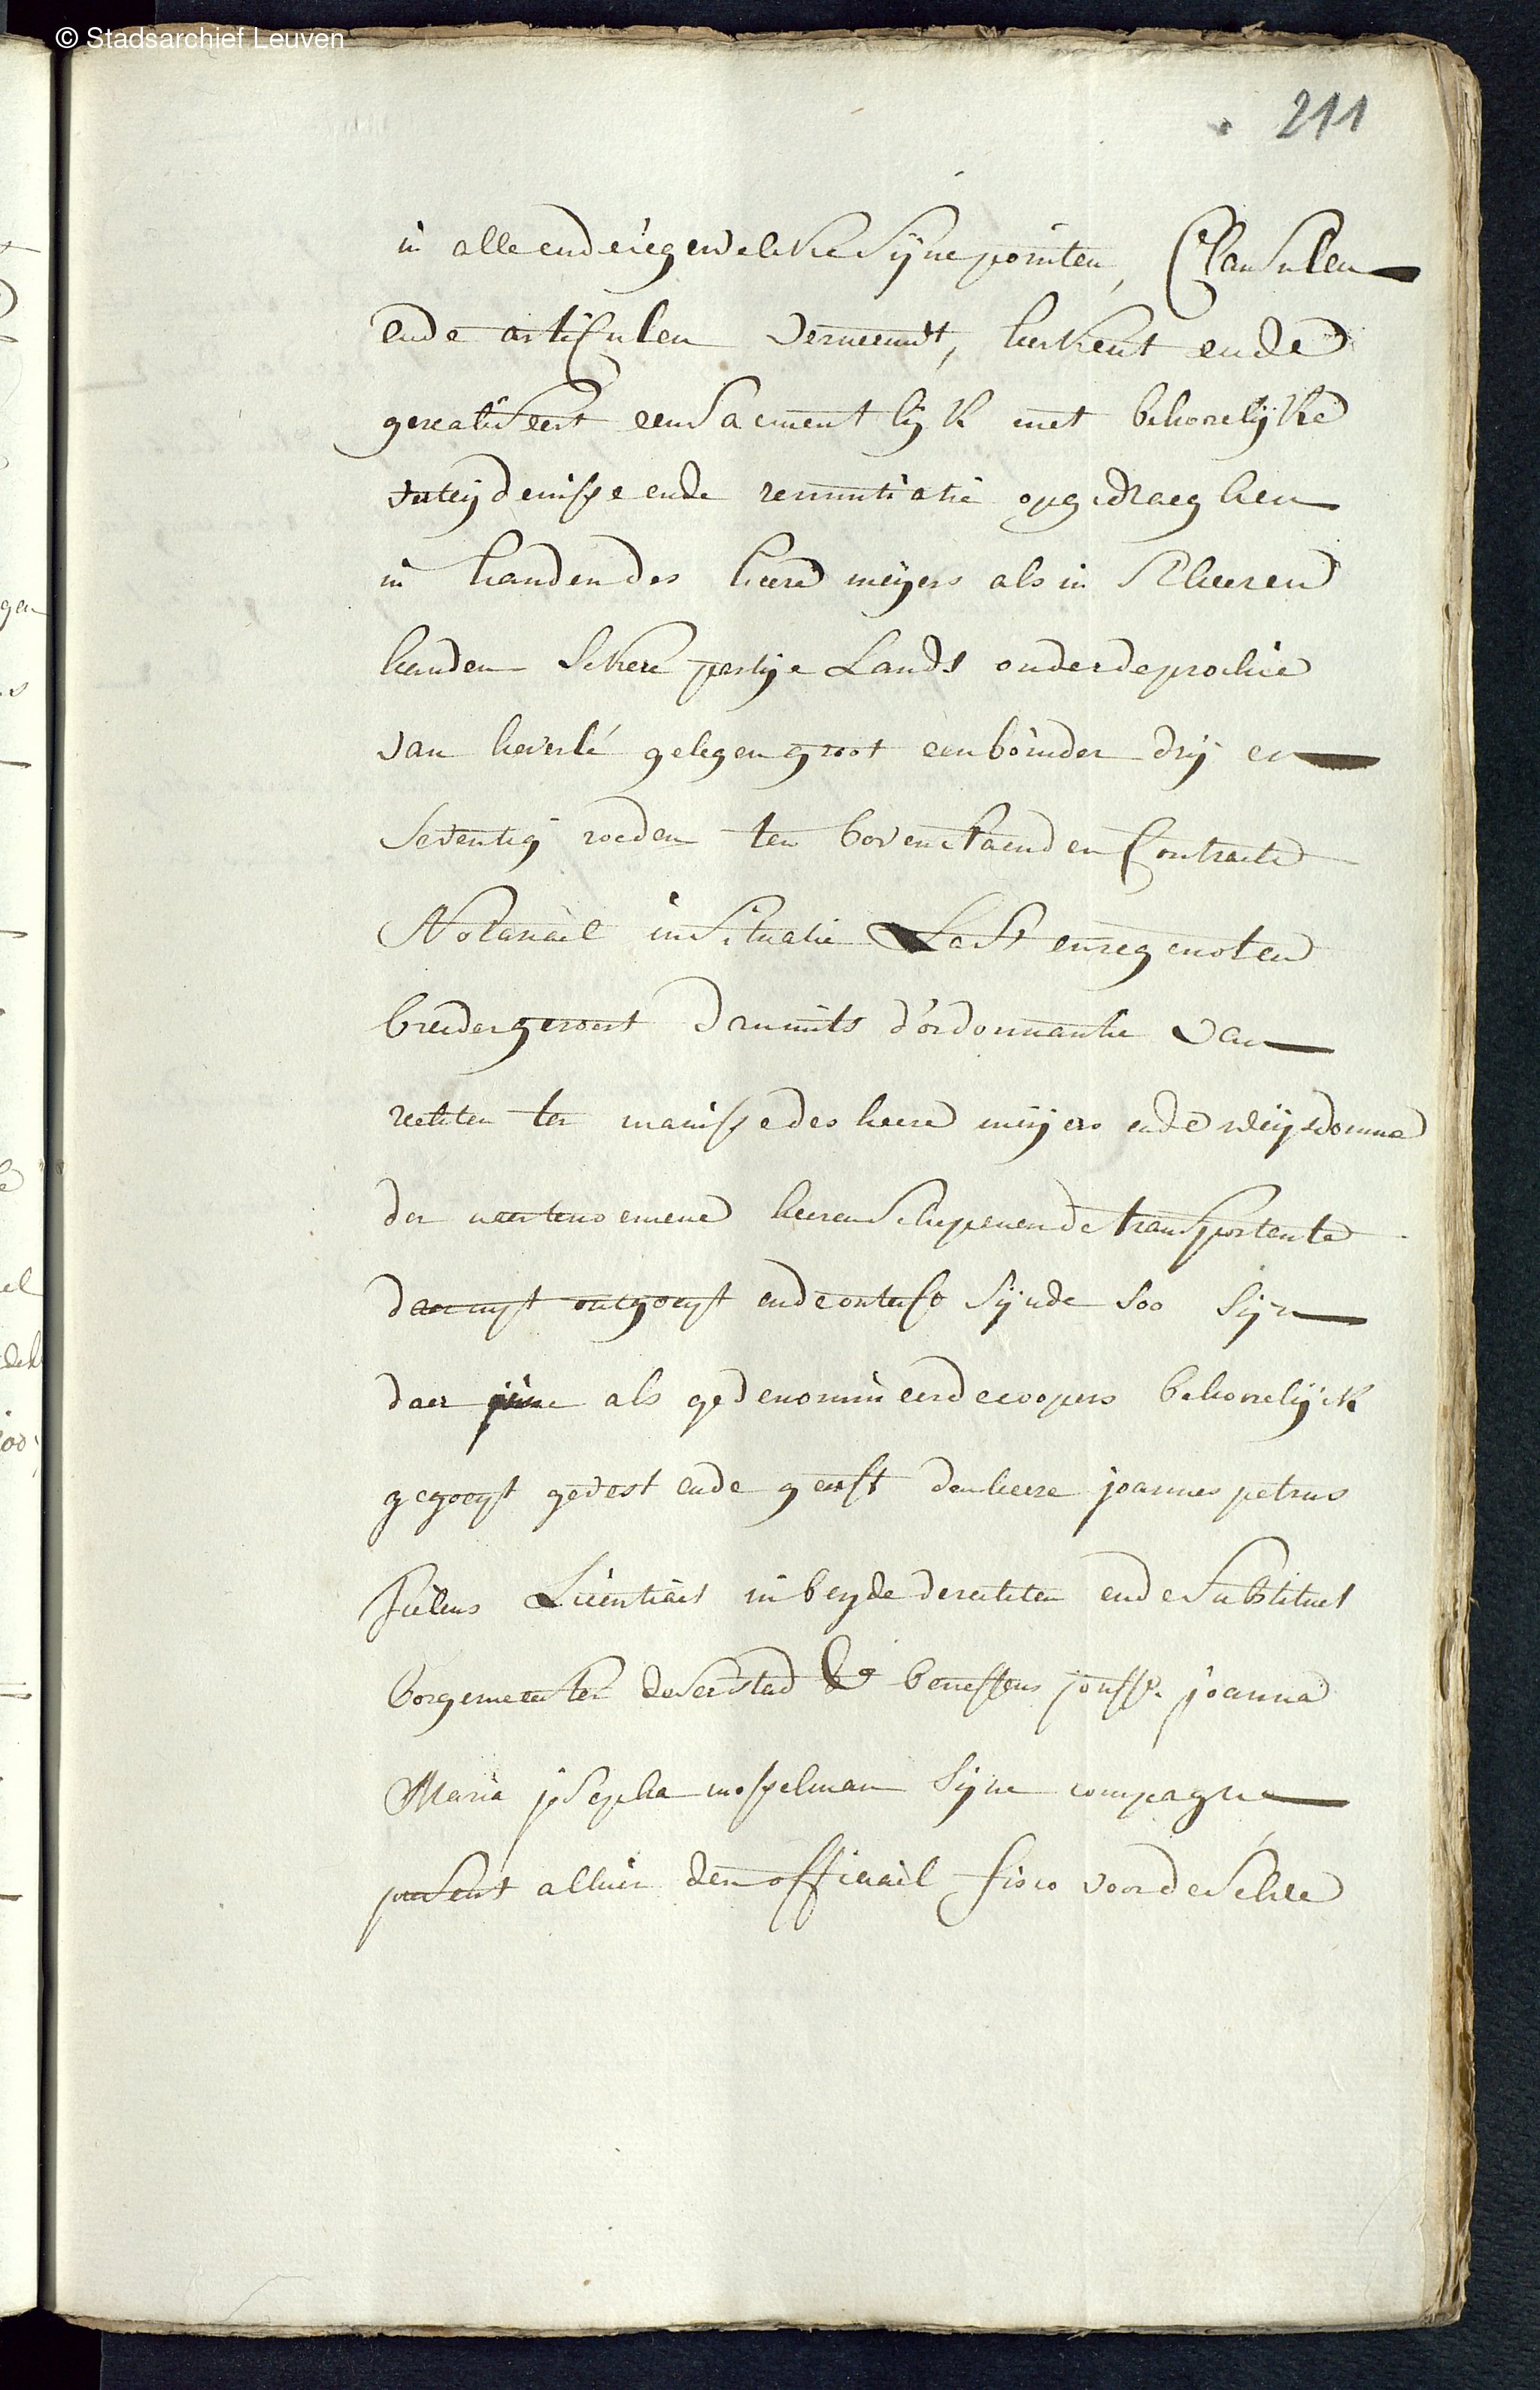 © Stadsarchief Leuven
211
in alle ende iegewelcke syne pointen, Clausulen
ende articulen vernieuwt, herkent ende
gerealiseert eensaementlijk met behorelijke
vuteijdenisse ende renuntiatie opgedraeghen
in handen des heere meijers als in sheeren
handen sekere partije Lands onder de prochie
van heverlé gelegen groot een boinder drij en
seventig roeden ten bovenstaenden Contracte
Notariael in situatie Last en regenoten
breeder geroert dan mits d'ordonnantie van
rechten ter manisse des heere meijers ende wijsdomme
der naertenoemene heeren schepenen de transportante
daer uyt ontgoeyt ende onterft sijnde soo sijn
daer inne als gedenomineerde coopers behorelijck
gegoeyt gevest ende geerft den heere joannes petrus
Licentiaet in beyde de rechten ende substituet
borgemeester deser stad &a beneffens jouffe. joanna
Maria josepha mosselman syne compagne
present alhier den officiael fisco voor deselve